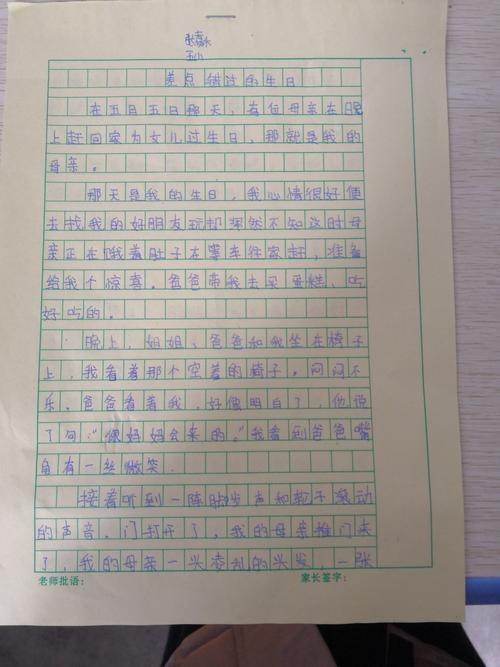 差点错过的生日
在五月五日那天，有位母亲在晚
上赶回家为女儿过生日，那就是我的
母亲。
那天是我的生日，我心情很好便
去找我的好朋友玩却浑然不知这时母
亲正在饿着肚子在塞车往家赶，准备
给我个惊喜。爸爸带我去买蛋糕、吃
好吃的。
晚上，姐姐、爸爸和我坐在椅子
上，我看着那个空着的椅子。闷闷不
乐。爸爸看着我，好像明白了，他说
了句：“你妈妈会来的。”我看到爸爸嘴
角有一丝微笑．
接着听到一阵脚步声和轮子滚动
的声音。门打开了，我的母亲推门来
了，我的母亲一头凌乱的头发，一张
老师批语：
家长签字：